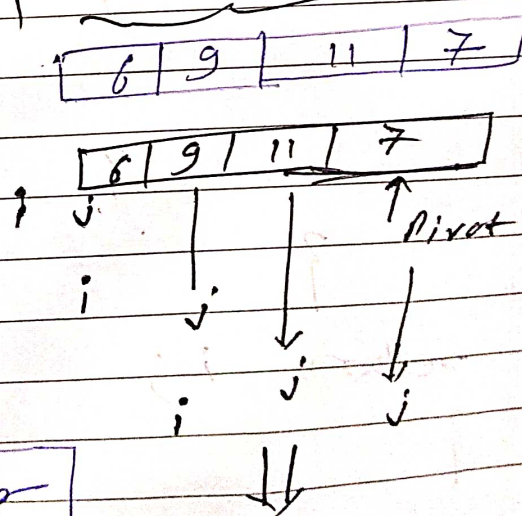 6 9 11 7
6 9 11 7
i j Pivot
i j
j
i j